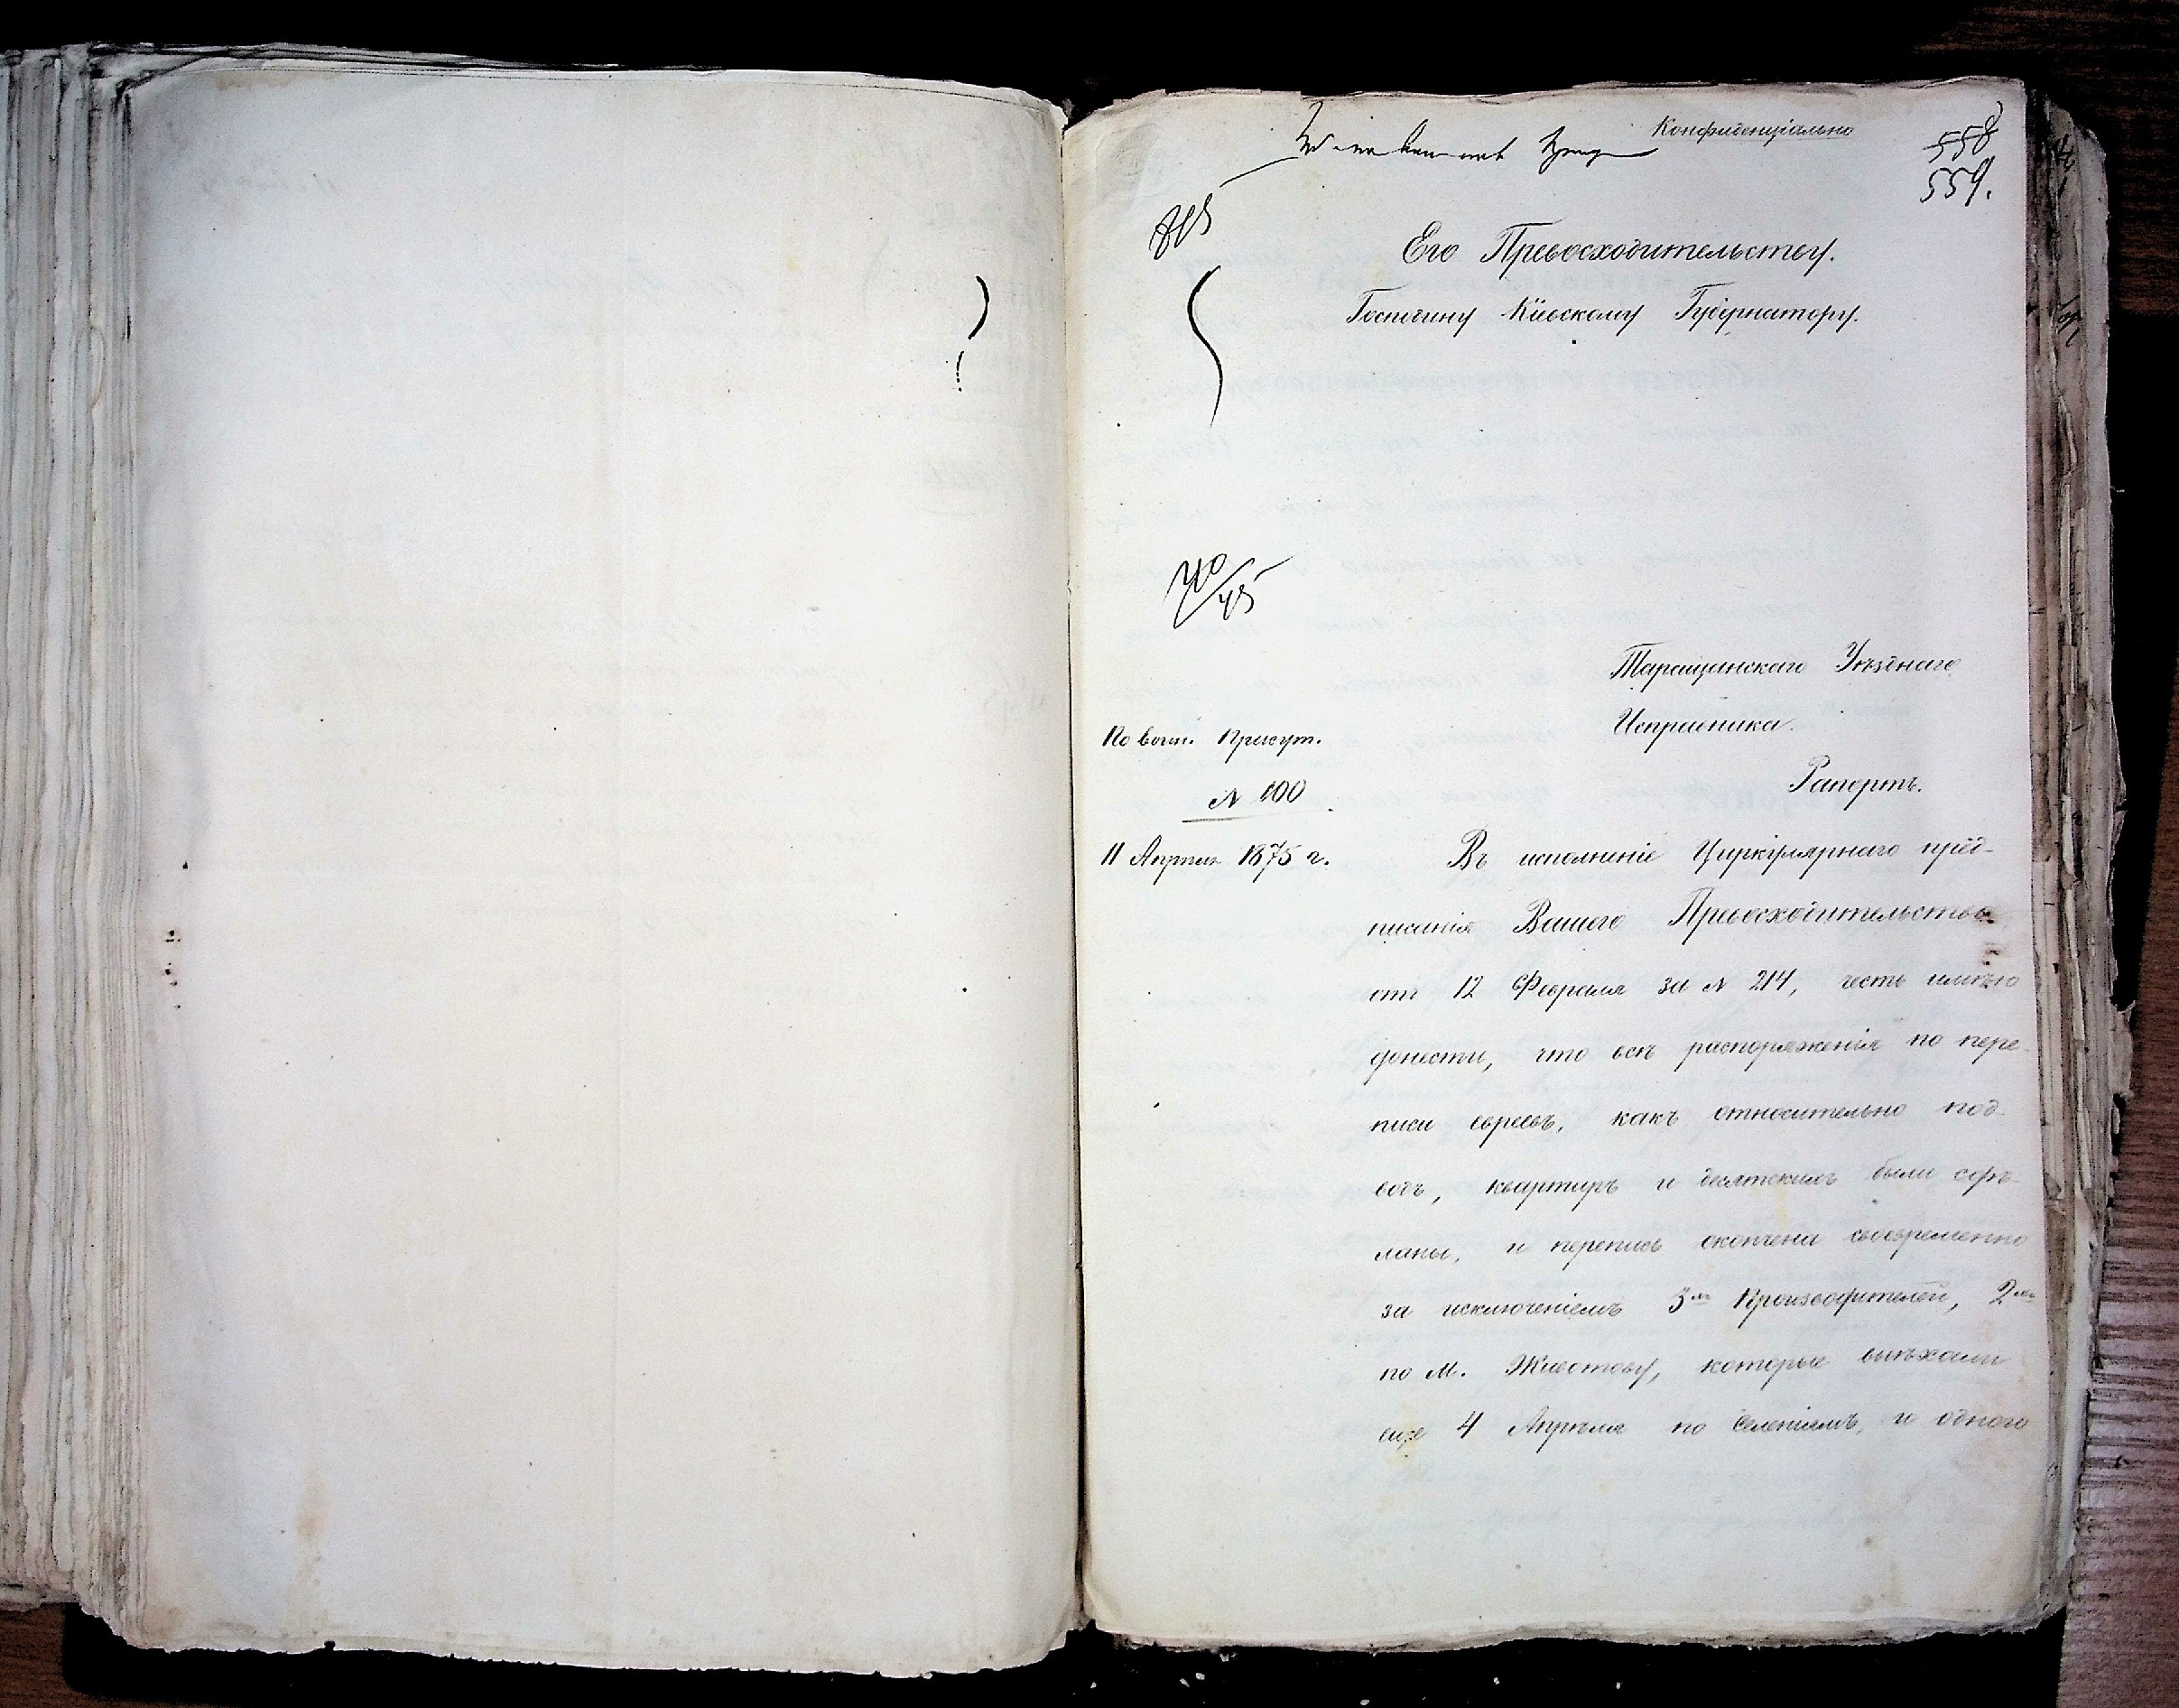 Конфиденціально
558
559.
Его Превосходительству.
Господину Кіевскому Губернатору.
Таращанскаго Уѣзднаго
Исправника.
По воин. Присут.
N 100
Рапортъ.
11 Апрѣля 1875 г.
Въ исполненіе Циркулярнаго пред-
писанія Вашего Превосходительства
отъ 12 Февраля за N 214, честь имѣю
донести, что всѣ распоряженія по пере-
писи евреевъ, какъ относительно под-
водъ, квартиръ и десятскихъ были сдѣ-
ланы, и перепись окончена своевременно
за исключеніемъ 3хъ Производителей, 2хъ
по М. Животову, которые выѣхали
еще 4 Апрѣля по селеніямъ, и одного